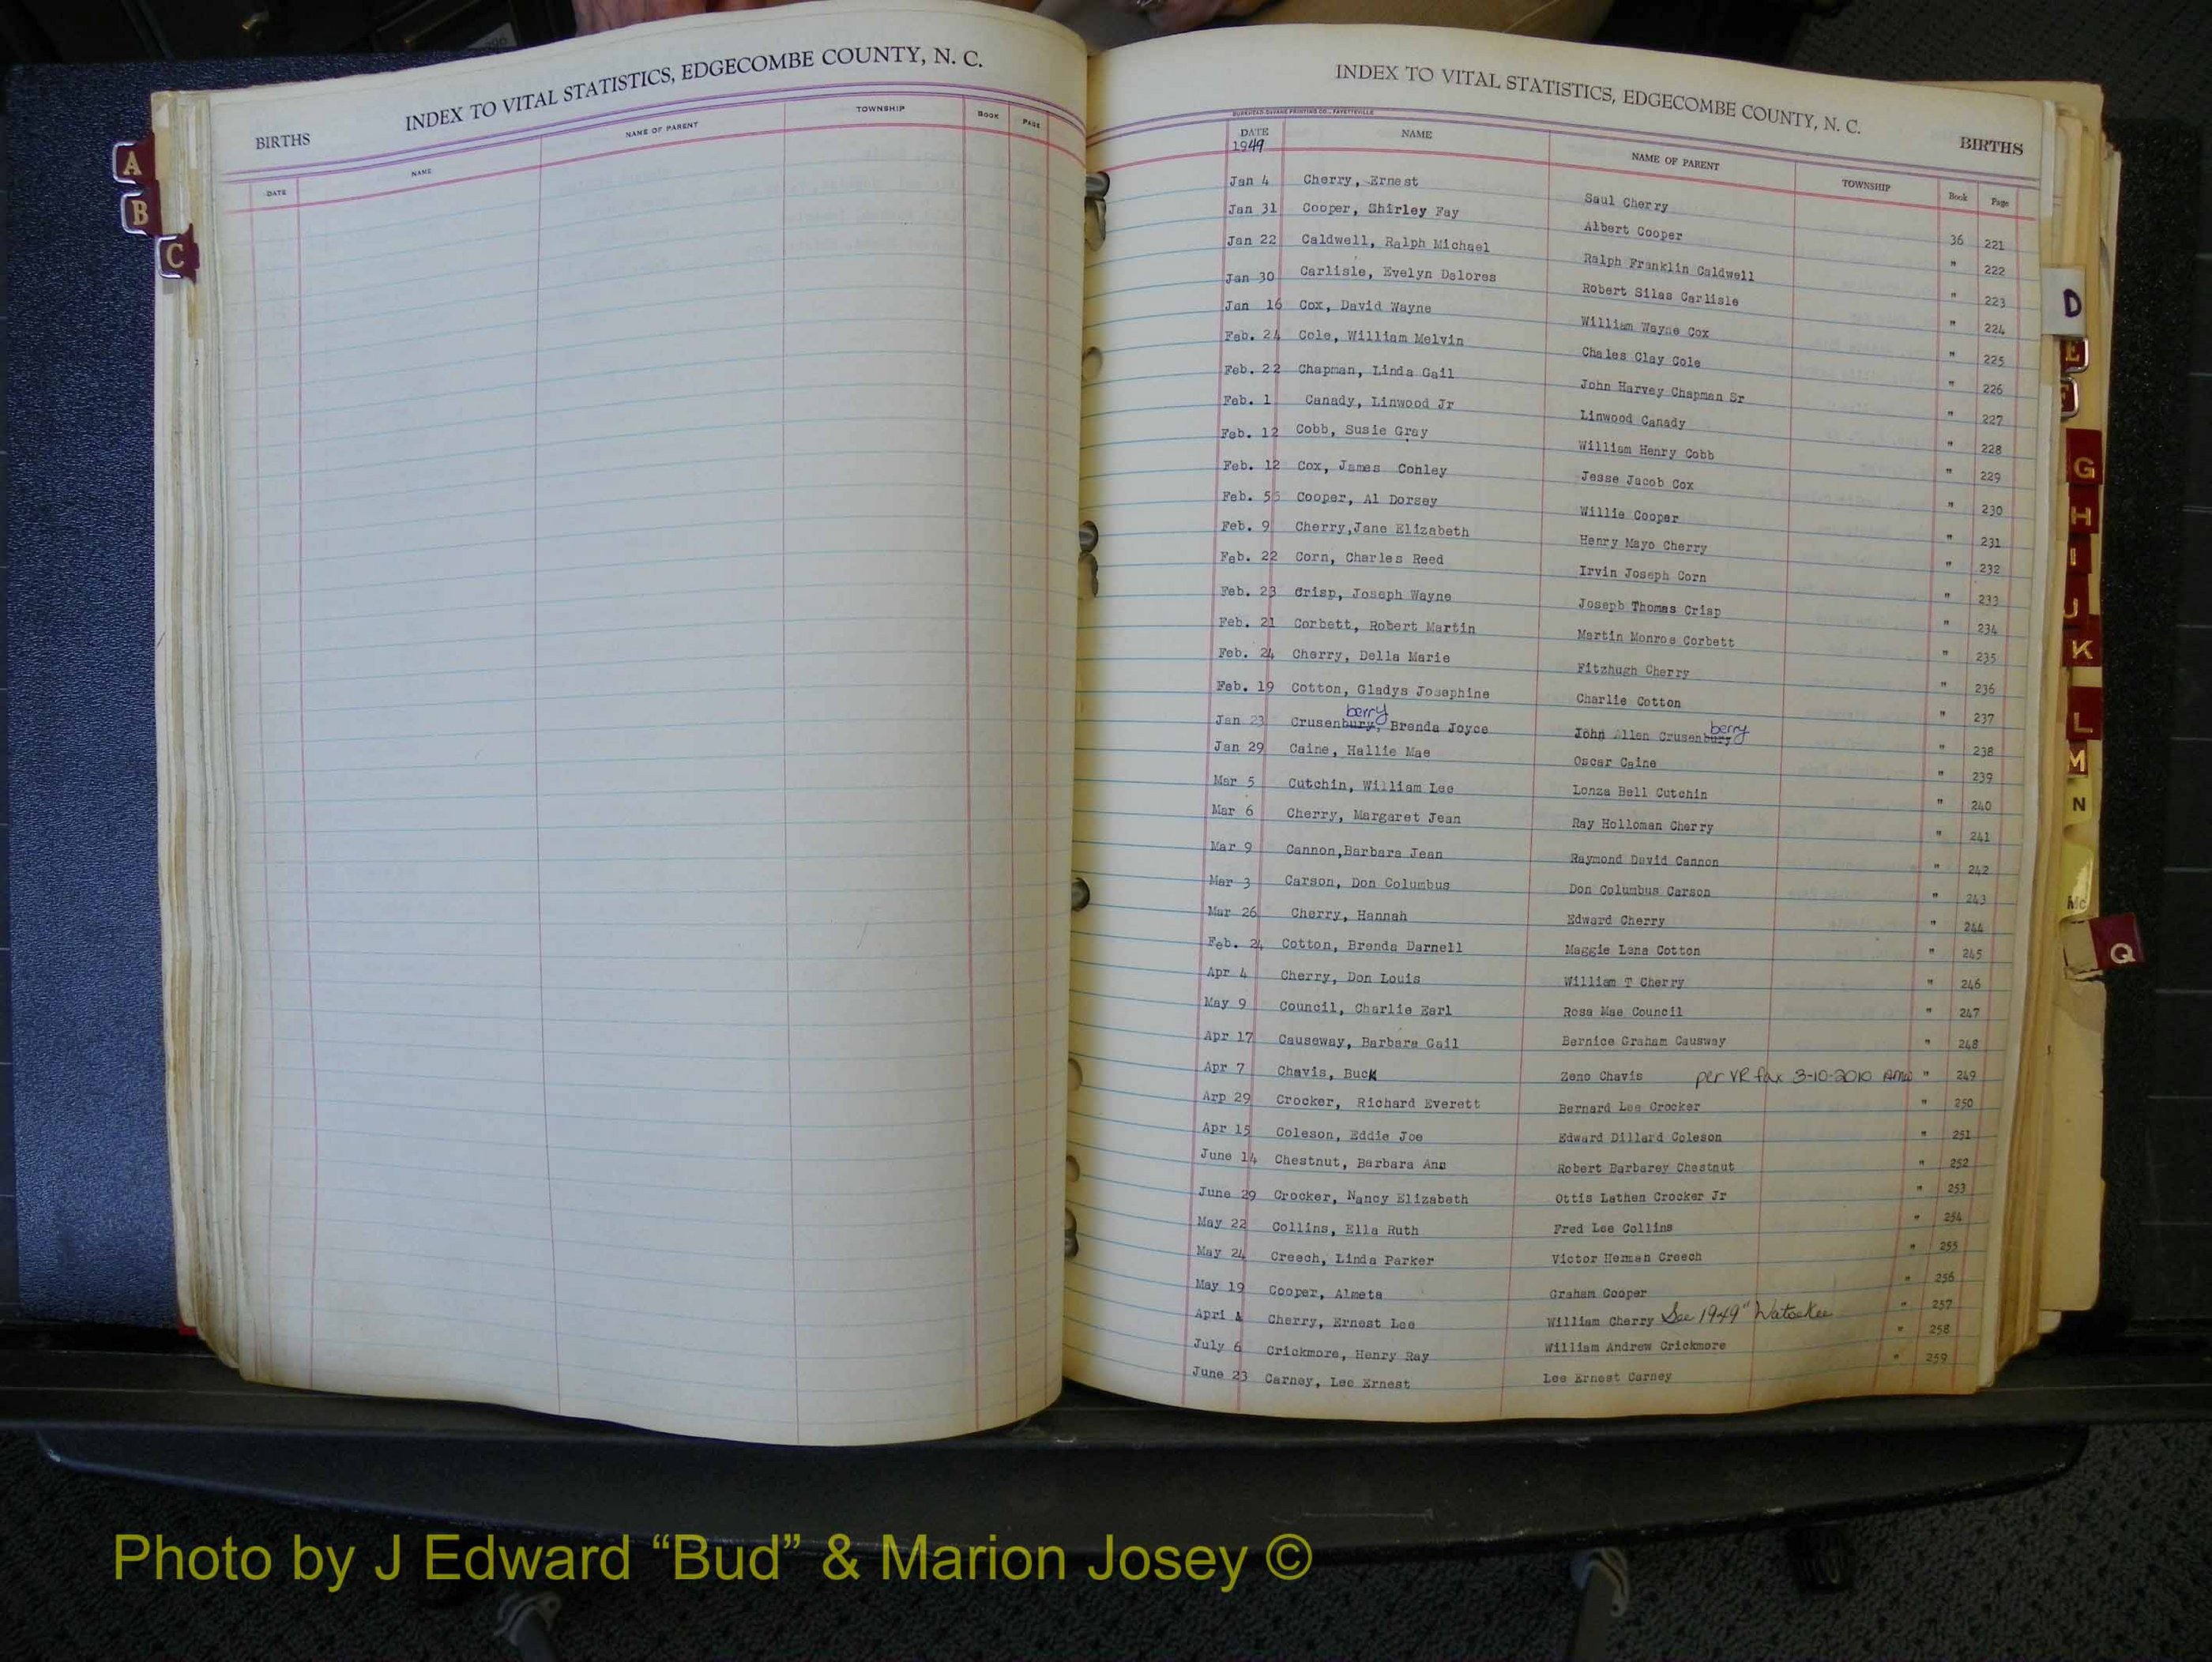 INDEX TO VITAL STATISTICS, EDGECOMBE COUNTY, N. C.
BIRTHS
DATE NAME NAME OF PARENT TOWNSHIP BOOK PAGE
A
B
C
INDEX TO VITAL STATISTICS, EDGECOMBE COUNTY, N. C.
BIRTHS
DATE NAME NAME OF PARENT TOWNSHIP Book Page
1949
Jan 4 Cherry, Ernest Saul Cherry 36 221
Jan 31 Cooper, Shirley Fay Albert Cooper " 222
Jan 22 Caldwell, Ralph Michael Ralph Franklin Caldwell " 223
Jan 30 Carlisle, Evelyn Delores Robert Silas Carlisle " 224
Jan 16 Cox, David Wayne William Wayne Cox " 225
Feb. 24 Cole, William Melvin Chales Clay Cole " 226
Feb. 22 Chapman, Linda Gail John Harvey Chapman Sr " 227
Feb. 1 Canady, Linwood Jr Linwood Canady " 228
Feb. 12 Cobb, Susie Gray William Henry Cobb " 229
Feb. 12 Cox, James Cohley Jesse Jacob Cox " 230
Feb. Cooper, Al Dorsey Willie Cooper " 231
Feb. 9 Cherry,Jane Elizabeth Henry Mayo Cherry " 232
Feb. 22 Corn, Charles Reed Irvin Joseph Corn " 233
Feb. 23 Crisp, Joseph Wayne Joseph Thomas Crisp " 234
Feb. 21 Corbett, Robert Martin Martin Monroe Corbett " 235
Feb. 24 Cherry, Della Marie Fitzhugh Cherry " 236
Feb. 19 Cotton, Gladys Josephine Charlie Cotton " 237
berry berry
Jan 23 Crusenbury, Brenda Joyce John Allen Crusenbury " 238
Jan 29 Caine, Hallie Mae Oscar Caine " 239
Mar 5 Cutchin, William Lee Lonza Bell Cutchin " 240
Mar 6 Cherry, Margaret Jean Ray Holloman Cherry " 241
Mar 9 Cannon,Barbara Jean Raymond David Cannon " 242
Mar 3 Carson, Don Columbus Don Columbus Carson " 243
Mar 26 Cherry, Hannah Edward Cherry " 244
Feb. 24 Cotton, Brenda Darnell Maggie Lena Cotton " 245
Apr 4 Cherry, Don Louis William T Cherry " 246
May 9 Council, Charlie Earl Rosa Mae Council " 247
Apr 17 Causeway, Barbara Gail Bernice Graham Causway " 248
Apr 7 Chavis, Buck Zeno Chavis per VR fax 3-10-2010 " 249
Arp 29 Crocker, Richard Everett Bernard Lee Crocker " 250
Apr 15 Coleson, Eddie Joe Edward Dillard Coleson " 251
June 14 Chestnut, Barbara Ann Robert Barbarey Chestnut " 252
June 29 Crocker, Nancy Elizabeth Ottis Lathen Crocker Jr " 253
May 22 Collins, Ella Ruth Fred Lee Collins " 254
May 24 Creech, Linda Parker Victor Herman Creech " 255
May 19 Cooper, Almeta Graham Cooper " 256
Apri Cherry, Ernest Lee William Cherry See 1949 " 257
July 6 Crickmore, Henry Ray William Andrew Crickmore " 258
June 23 Carney, Lee Ernest Lee Ernest Carney " 259
D
E
F
G
H
I
J
K
L
M
N
Mc
Q
Photo by J Edward “Bud” & Marion Josey ©